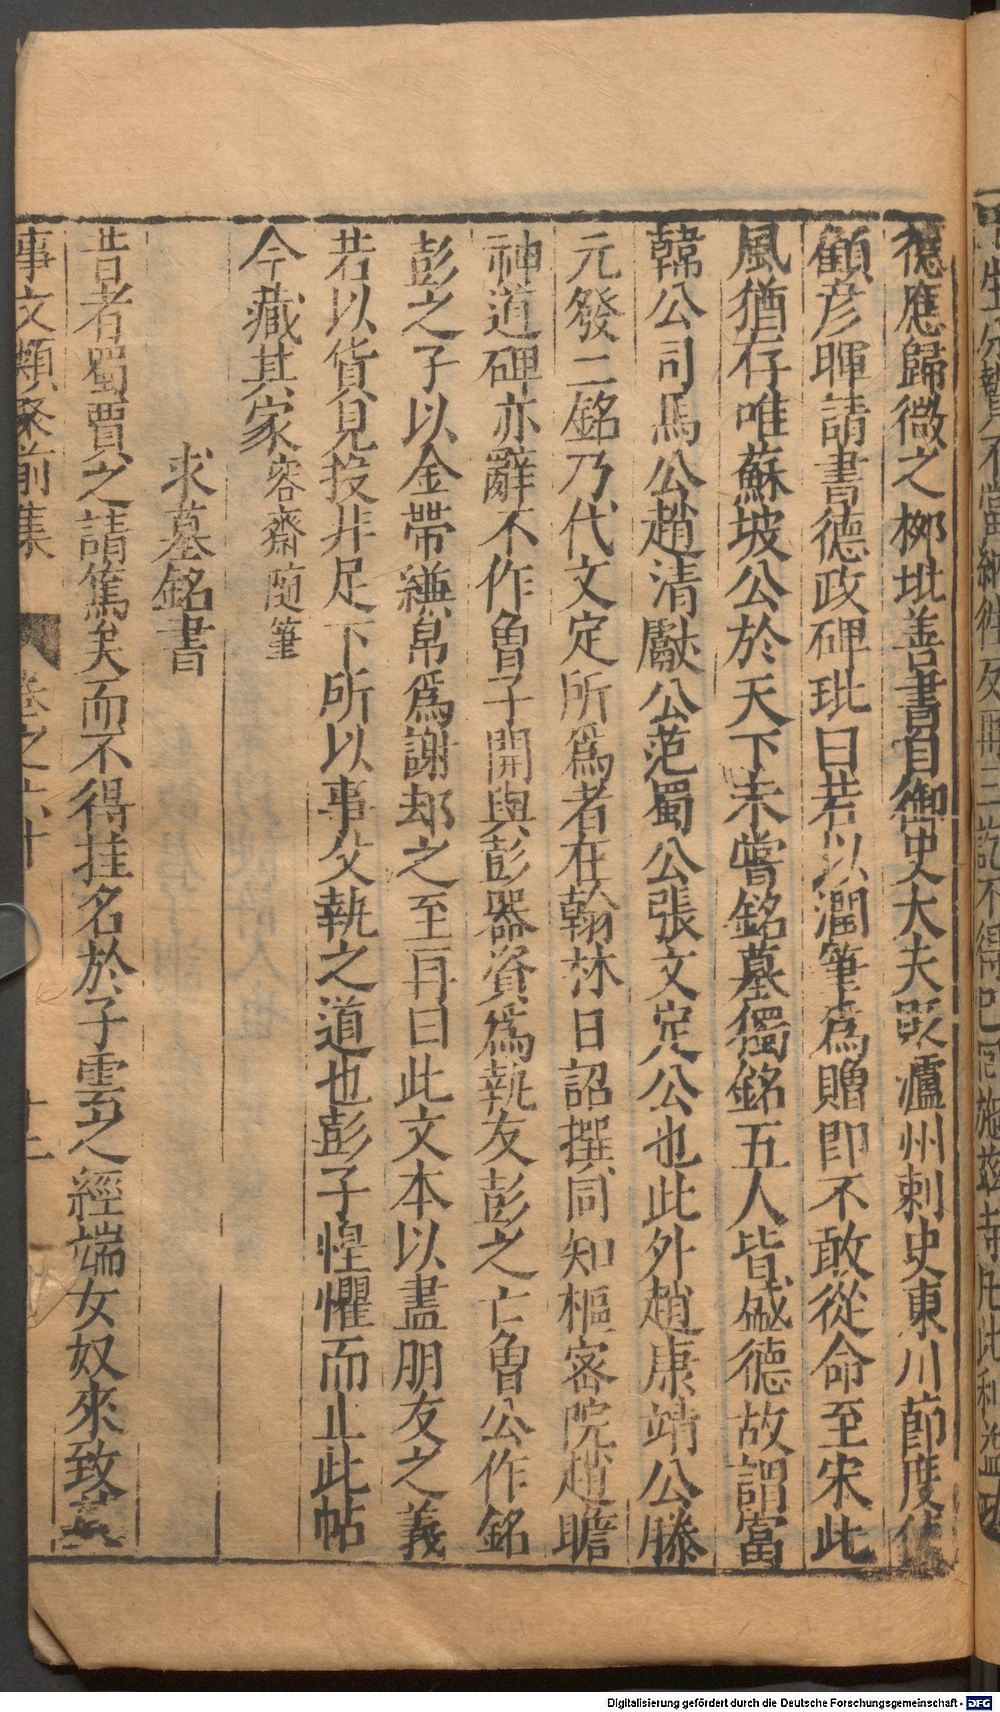 德應歸微之柳玭善書自御史大夫貶瀘州刺史東川節度使
顧彥暉請書德政碑玭曰若以潤筆爲贈即不敢從命至宋此
風猶存唯蘇坡公於天下未嘗銘墓獨銘五人皆盛德故謂富
韓公司馬公趙清獻公范蜀公張文定公也此外趙康靖公滕
元發二銘乃代文定所爲者在翰林日詔撰同知樞密院趙瞻
神道碑亦辭不作曾子開與彭器資爲執友彭之亡曾公作銘
彭之子以金帶縑帛爲謝却之至再曰此文本以盡朋友之義
若以貨見投非足下所以事父執之道也彭子惶懼而止此帖
今藏其家 容齋隨筆
求墓銘書
昔者蜀賈之請篤矣而不得挂名於子雲之經端女奴來致
事文類聚前集 卷之六十 十二
Digitalisierung gefördert durch die Deutsche Forschungsgemeinschaft - DFG